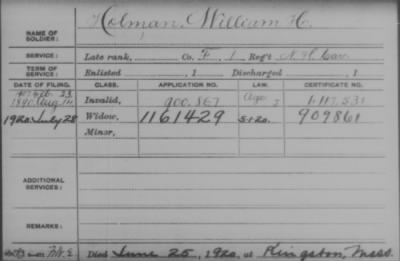 Holman, William H.
NAME OF SOLDIER:
SERVICE: Late rank, Co. F, 1 Reg't N. H. Cav.
TERM OF SERVICE: Enlisted , 1 Discharged , 1
DATE OF FILING. CLASS. APPLICATION NO. LAW. CERTIFICATE NO.
1890 Aug 14 Invalid, 900.867 1.117.531
1920 July 28 Widow, 1161429 5-1-20. 909861
Minor,
ADDITIONAL SERVICES:
REMARKS:
Died June 25, 1920, at Kingston, Mass.